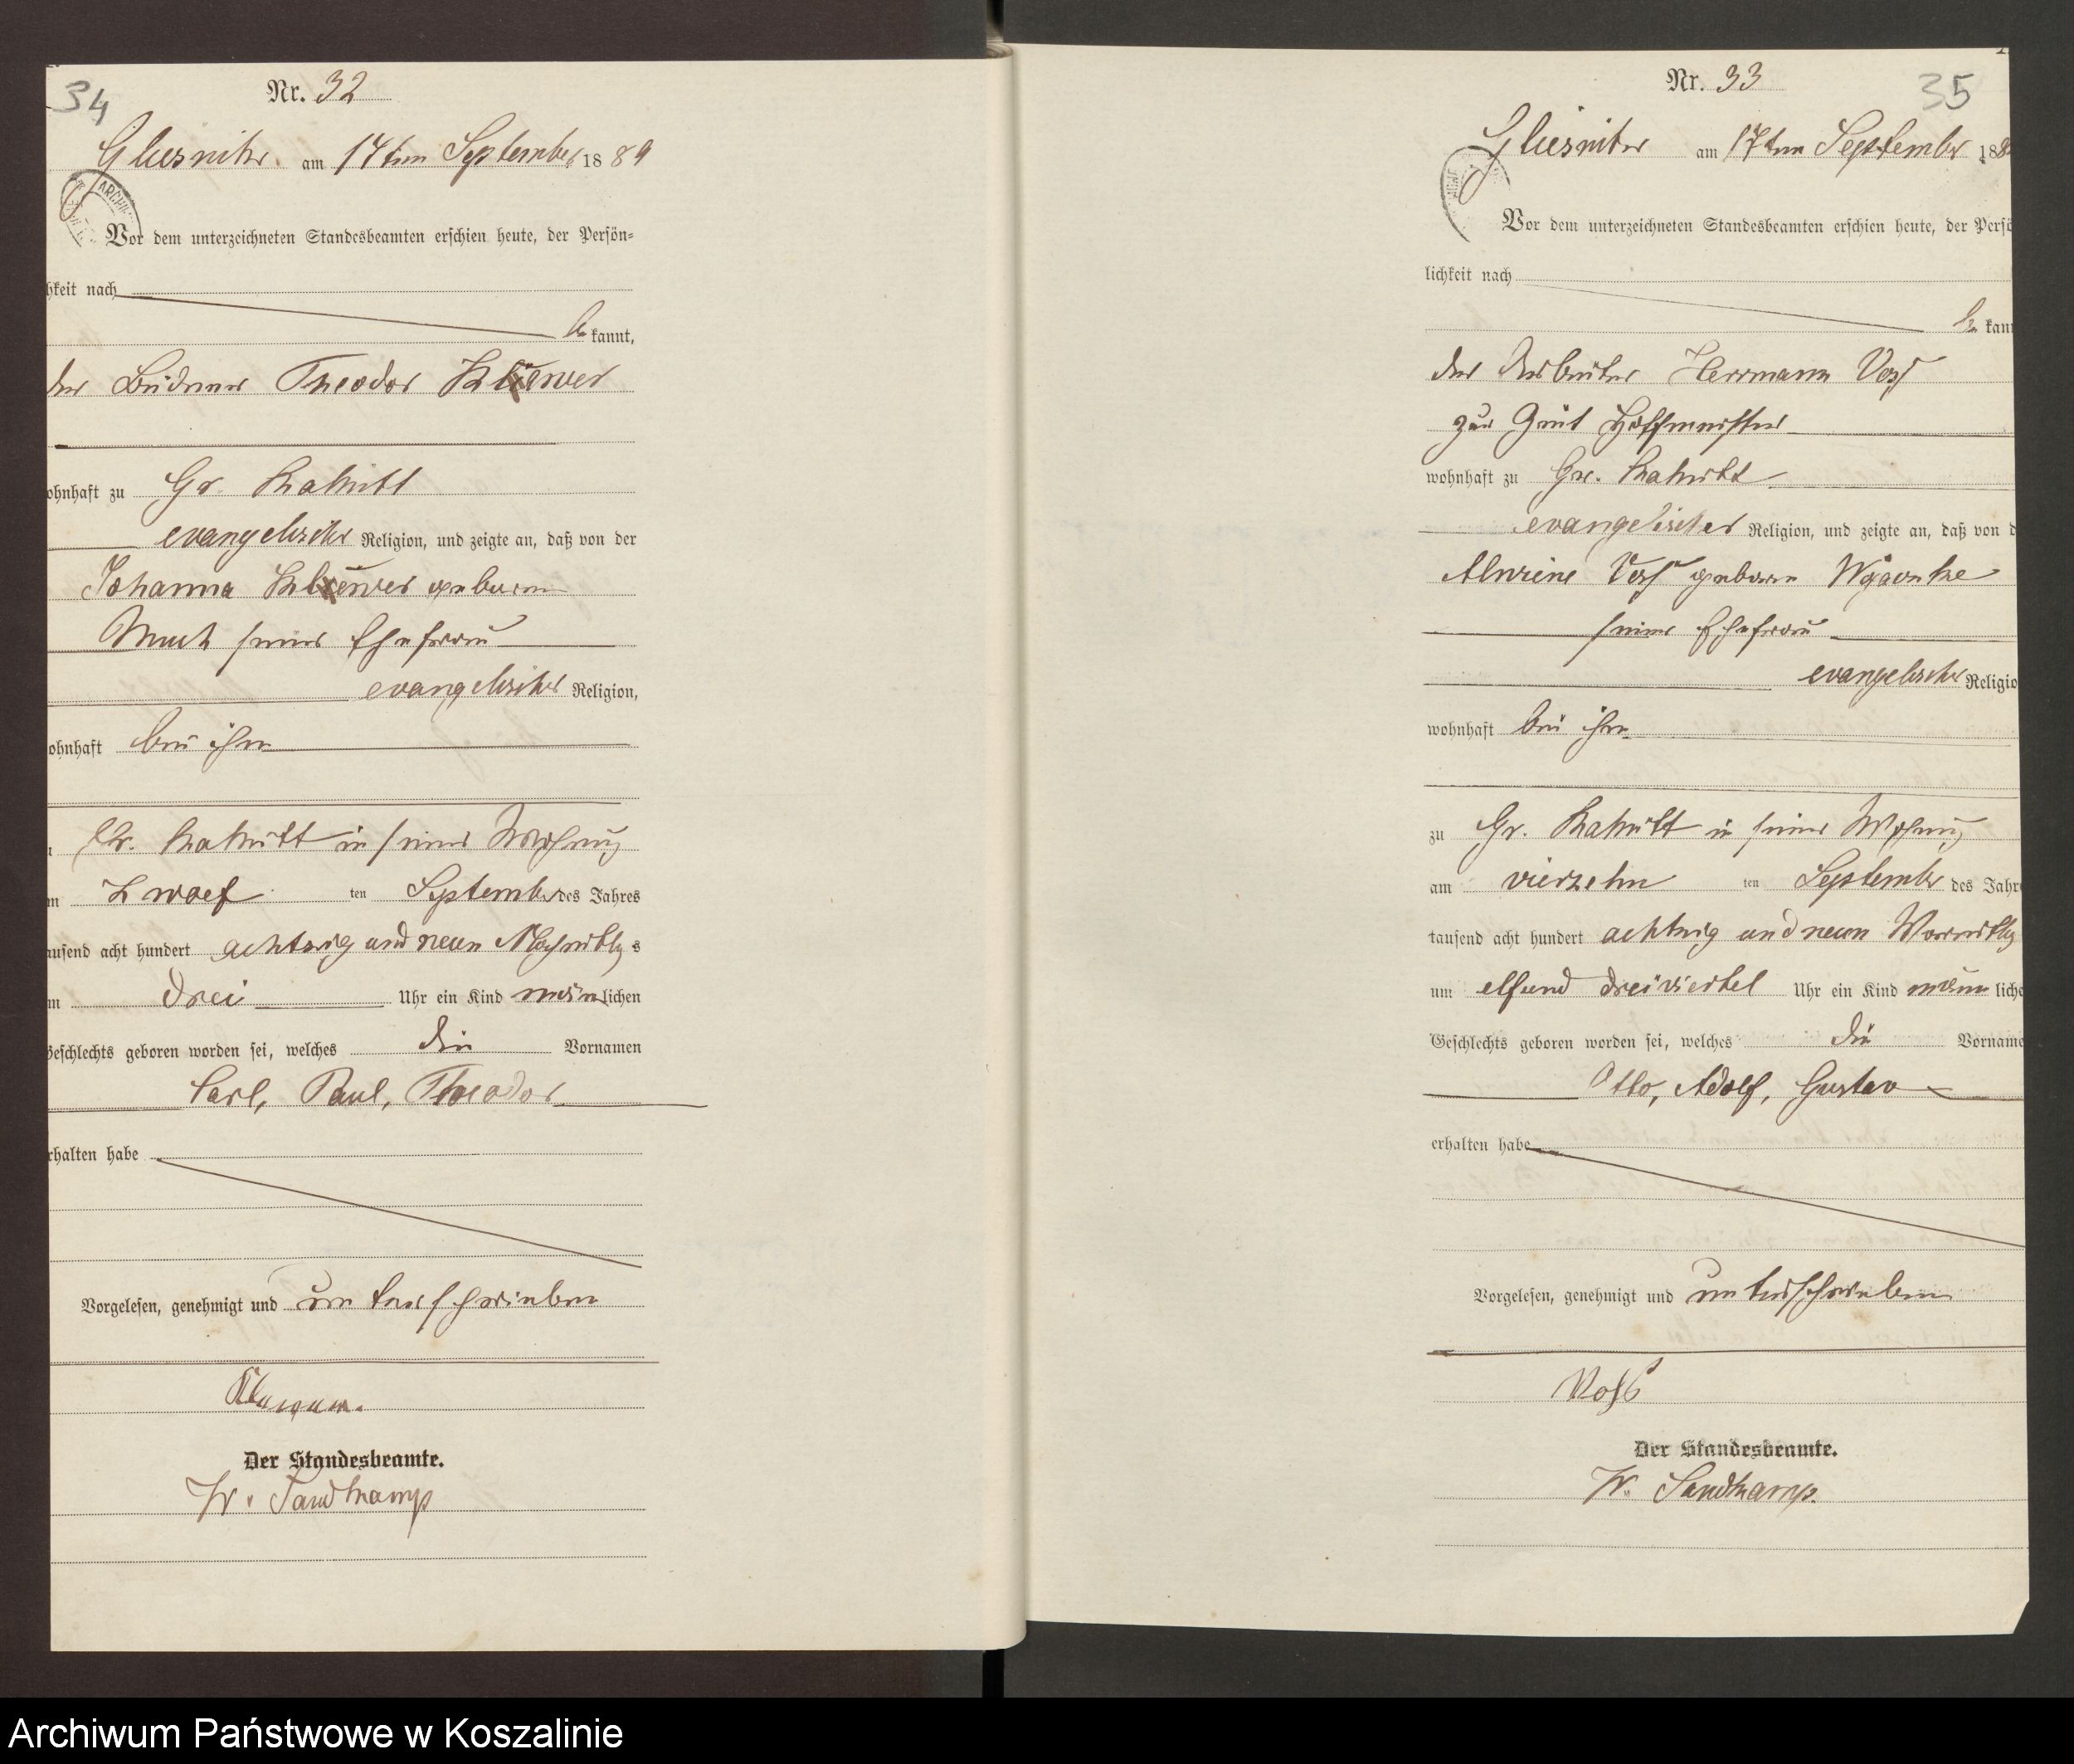 34
Nr. 32
Gliesnitz am 17ten September 1889
Vor dem unterzeichneten Standesbeamten erschien heute, der Persön=
hkeit nach
be kannt,
der Büdner Theodor Kluewer
ohnhaft zu Gr. Rakitt
evangelischer Religion, und zeigte an, daß von der
Johanna Kluewer geborene
Much seiner Ehefrau
evangelischer Religion,
ohnhaft bei ihm
Gr. Rakitt in seiner Wohnung
m Zwoelf ten September des Jahres
ausend acht hundert achtzig und neun Nachmittags
m drei Uhr ein Kind männlichen
Geschlechts geboren worden sei, welches die Vornamen
Carl, Paul, Theodor
rhalten habe
Vorgelesen, genehmigt und unterschrieben
Der Standesbeamte.
W. Sandkamp
Nr. 33
35
Gliesnitz am 17ten September 188
Vor dem unterzeichneten Standesbeamten erschien heute, der Persö
lichkeit nach
be kann
der Arbeiter Herrmann Voß
zur Zeit Hoffmeister
wohnhaft zu Gr. Rakitt
evangelischer Religion, und zeigte an, daß von d
Alwine Voß geborene
seiner Ehefrau
evangelischer Religio
wohnhaft bei ihm
zu Gr. Rakitt in seiner Wohnung
am vierzehn ten September des Jahre
tausend acht hundert achtzig und neun Vormittag
um elf und dreiviertel Uhr ein Kind männ liche
Geschlechts geboren worden sei, welches die Vorname
Otto, Adolf, Gustav
erhalten habe
Vorgelesen, genehmigt und unterschrieben
Voß
Der Standesbeamte.
W. Sandkamp.
Archiwum Państwowe w Koszalinie